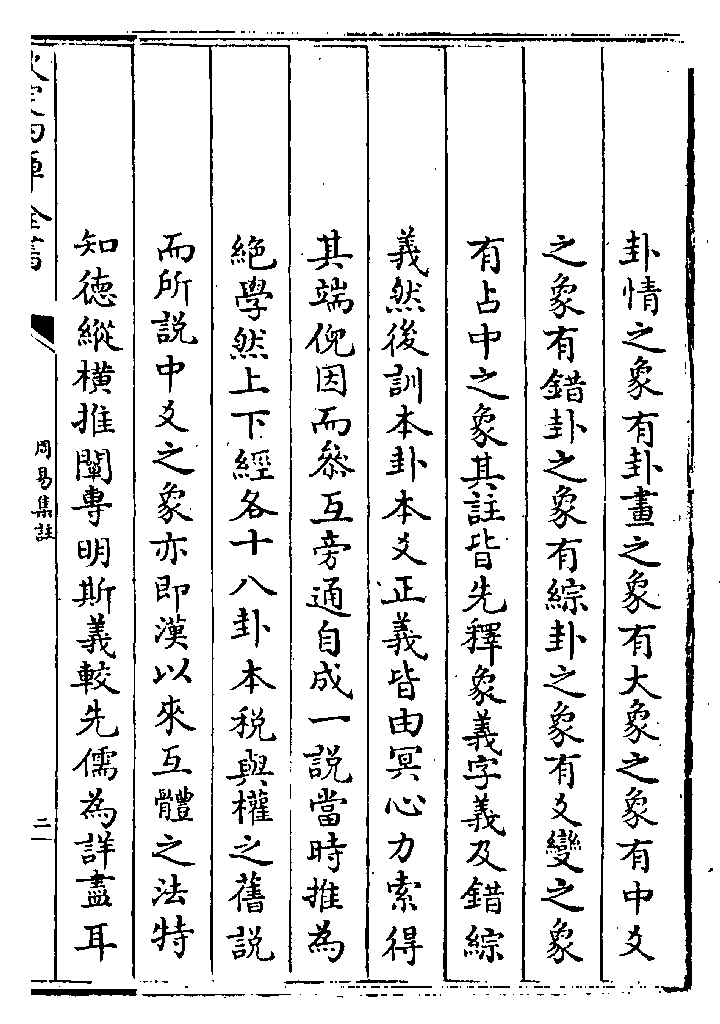 卦情之象有卦畫之象有大象之象有中爻
之象有錯卦之象有綜卦之象有爻變之象
有占中之象其註皆先釋象義字義及錯綜
義然後訓本卦本爻正義皆由冥心力索得
其端倪因而叅互旁通自成一説當時推為
絶學然上下經各十八卦本税與權之舊説
而所説中爻之象亦即漢以來互體之法特
知德縱横推闡專明斯義較先儒為詳盡耳
欽定四庫全書
周易集註
二